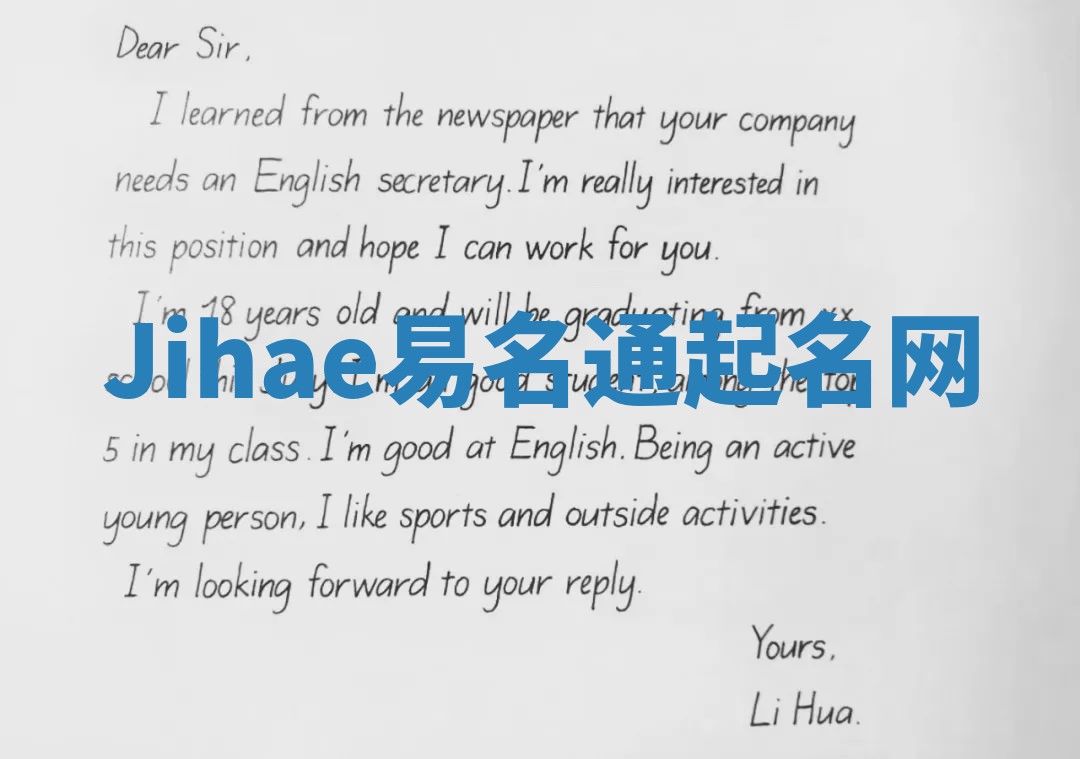 Dear Sir,
I learned from the newspaper that your company
needs an English secretary. I'm really interested in
this position and hope I can work for you.
I'm 18 years old and will be graduating from xx
Jihae易名通起名网
school this July. I'm a good student, among the top
5 in my class. I'm good at English. Being an active
young person, I like sports and outside activities.
I'm looking forward to your reply.
Yours,
Li Hua.